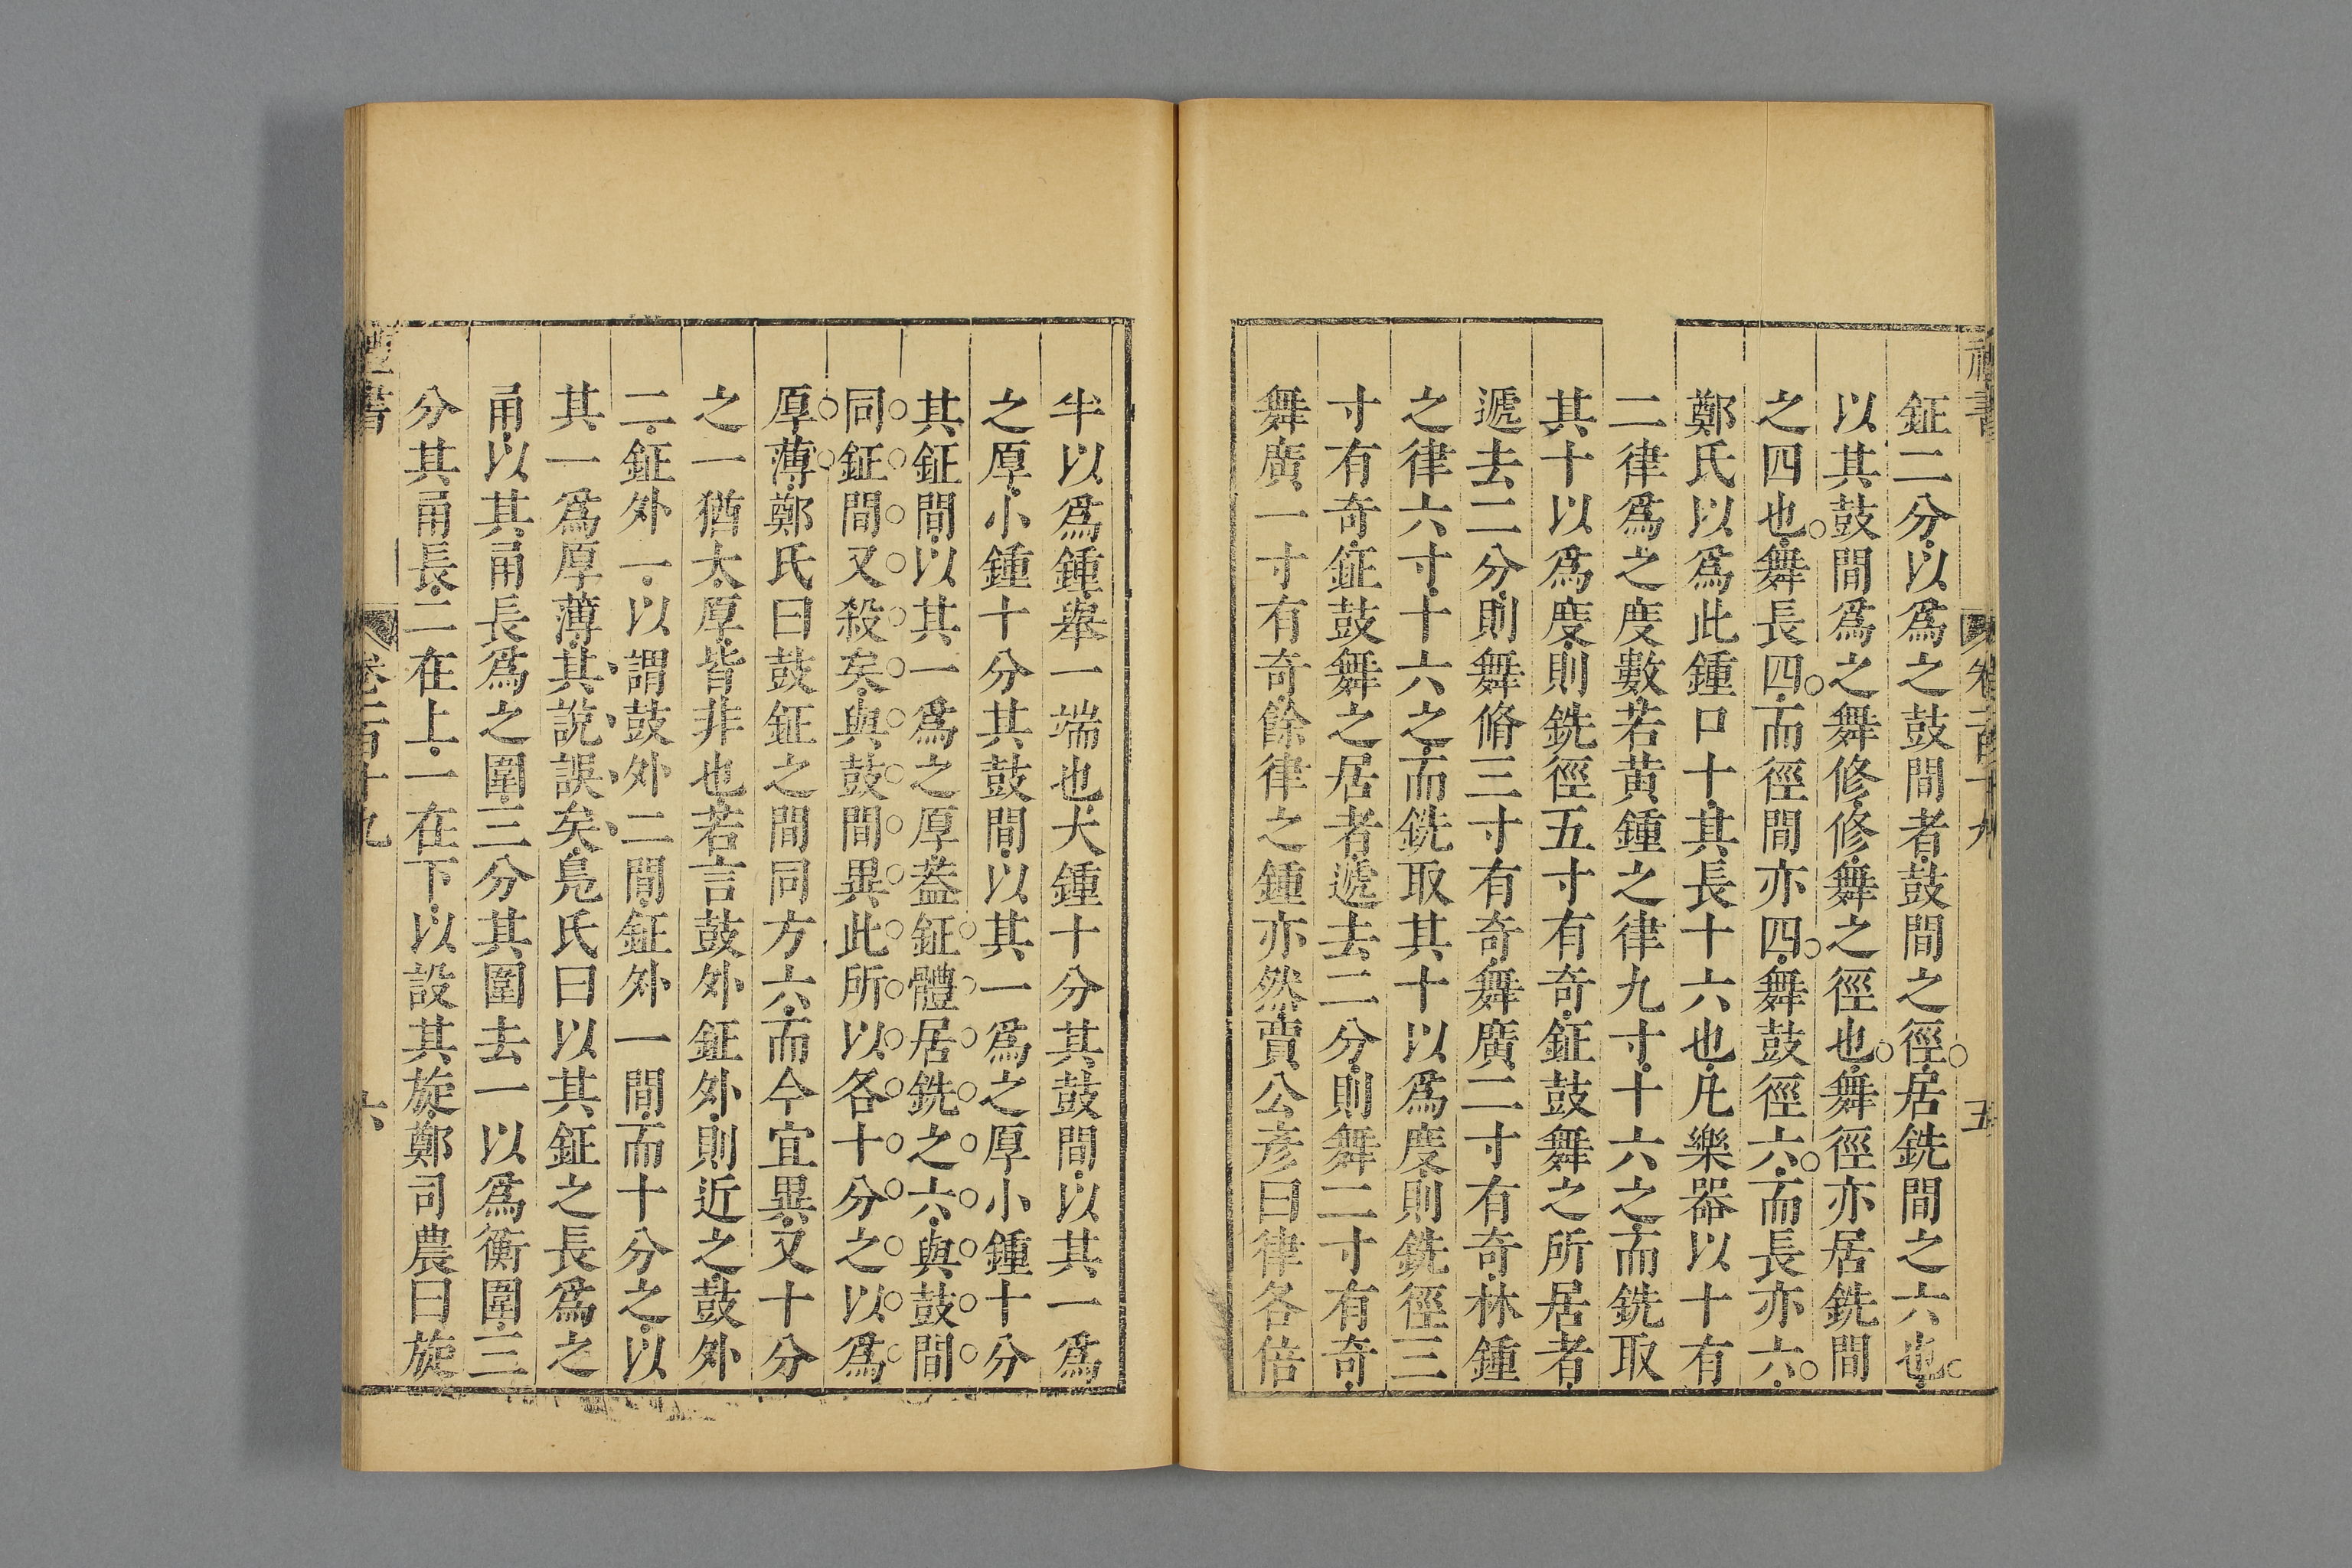 禮書 卷一百十九 五
鉦二分以爲之鼓間者鼓間之徑居銑間之六也
以其鼓間爲之舞修修舞之徑也舞徑亦居銑間
之四也舞長四而徑間亦四舞鼓徑六而長亦六
鄭氏以爲此鍾口十其長十六也凡樂器以十有
二律爲之度數若黃鍾之律九寸十六之而銑取
其十以爲度則銑徑五寸有奇鉦鼓舞之所居者
遞去二分則舞脩三寸有奇舞廣二寸有奇林鍾
之律六寸十六之而銑取其十以爲度則銑徑三
寸有奇鉦鼓舞之居者遞去二分則舞二寸有奇
舞廣一寸有奇餘律之鍾亦然賈公彥曰律各倍
半以爲鍾舉一端也大鍾十分其鼓間以其一爲
之厚小鍾十分其鼓間以其一爲之厚小鍾十分
其鉦間以其一爲之厚葢鉦體居銑之六與鼓間
同鉦間又殺矣與鼓間異此所以各十分之以爲
厚薄鄭氏曰鼓鉦之間同方六而今宜異又十分
之一猶太厚皆非也若言鼓外鉦外則近之鼓外
二鉦外一以謂鼓外二間鉦外一間而十分之以
其一爲厚薄其說誤矣鳧氏曰以其鉦之長爲之
甬以其甬長爲之圍三分其圍去一以爲衡圍三
分其甬長二在上一在下以設其旋鄭司農曰旋
禮書 卷一百十九 六